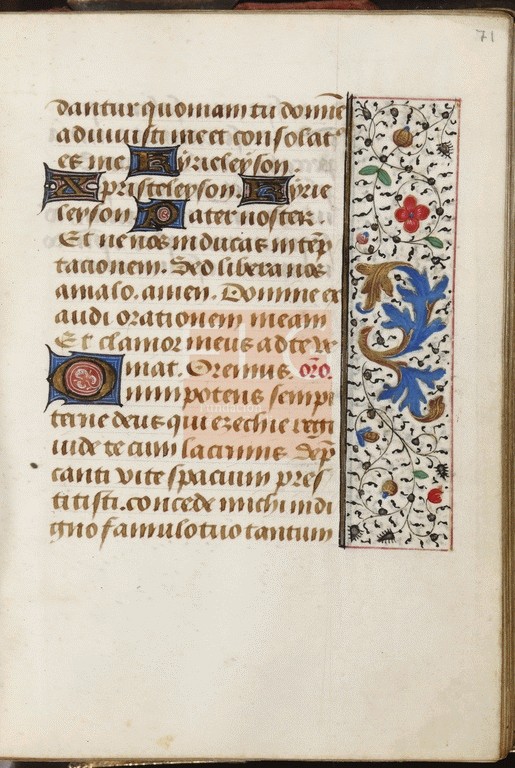 71
dantur quoniam tu domine
adiuvisti me et consolat
es me. Kyrieleyson.
Xpristeleyson. Kyrie
leyson. Pater noster
Et ne nos inducas in tep
tacionem. Sed libera nos
a malo. amen. Domine ex
audi orationem meam
Et clamor meus ad te ve
niat. Oremus. oro.
Omnipotens sempi
terne deus qui ezechie regi
iude te cum lacrimis dep
canti vite spacium pres
titisti. concede michi indi
gno famulo tuo tantum